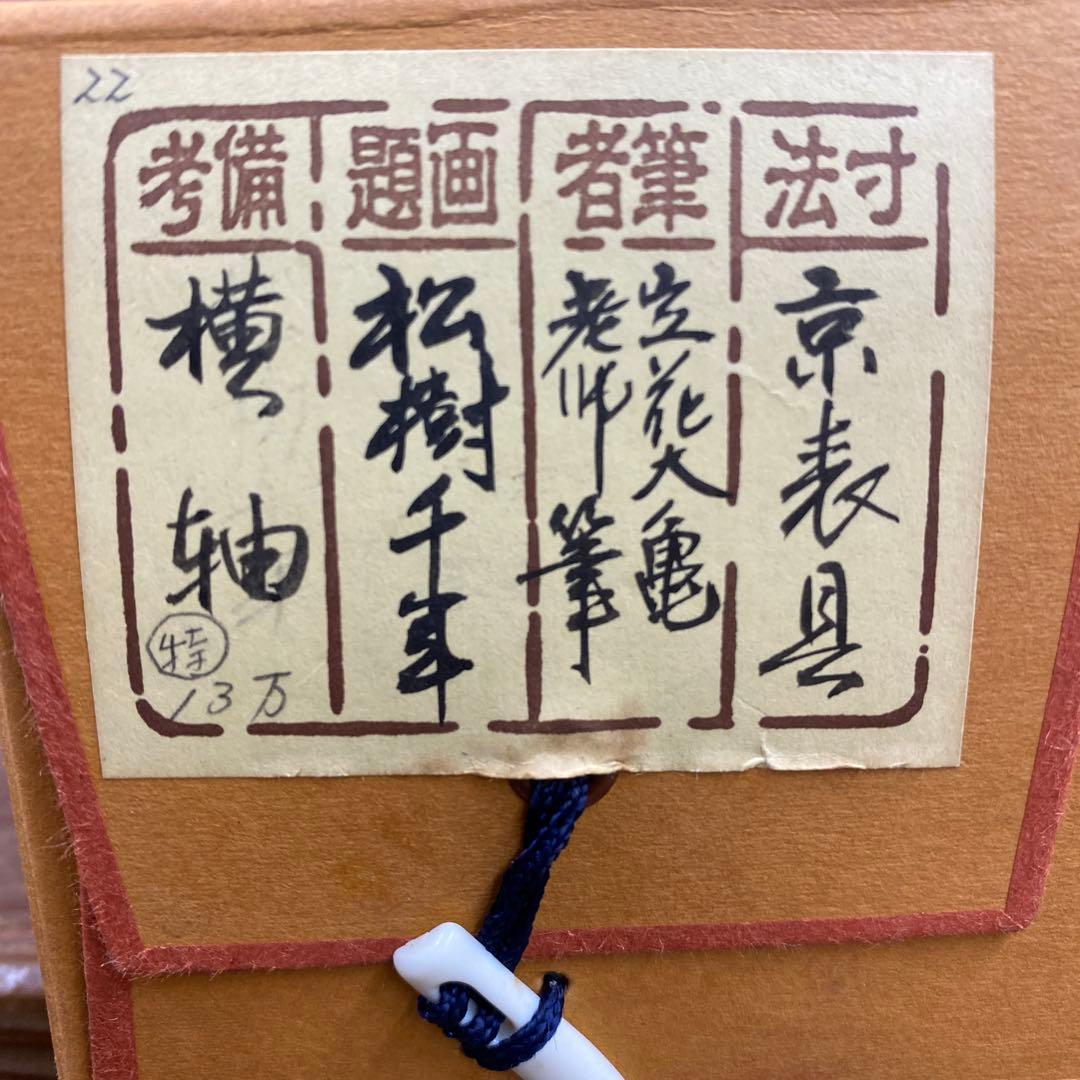 22
寸法
京表具
筆者
立花大亀
老师筆
画題
松樹千年
備考
横軸
特
13万